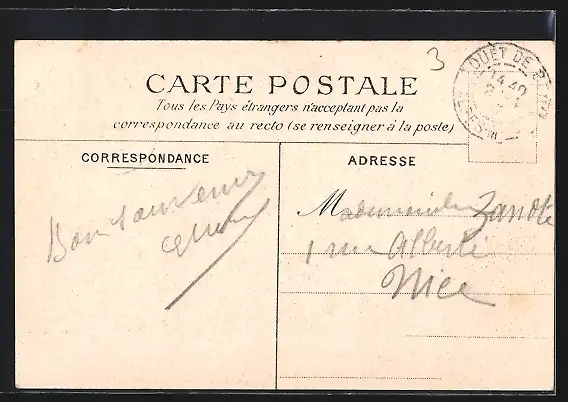 3
OUET DE
14 40
CARTE POSTALE
Tous les Pays étrangers n'acceptant pas la
correspondance au recto (se renseigner à la poste)
CORRESPONDANCE
ADRESSE
Bon souvenir
Mademoiselle
1 rue Alberti
Nice